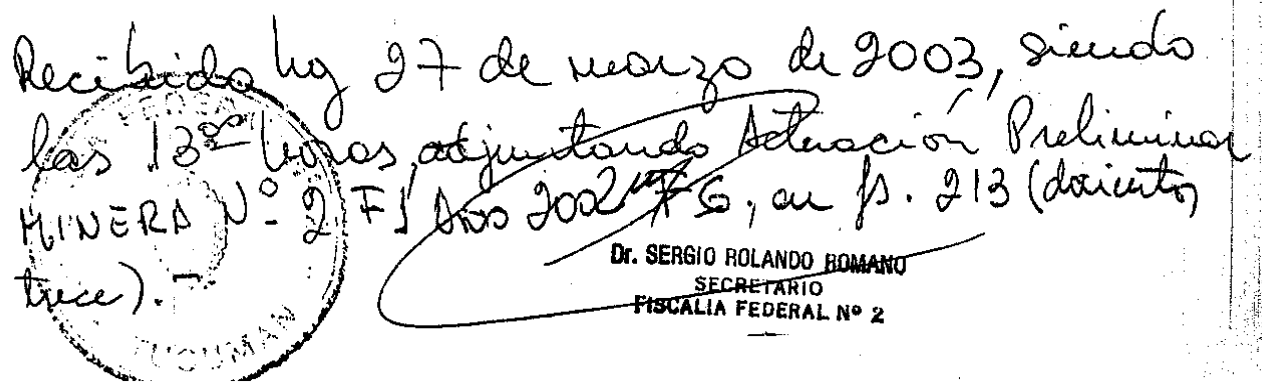 Recibido hoy 27 de marzo de 2003, siendo
las 13 horas, adjuntando Actuación Preliminar
MINERA Nº 2 Año 2002, en fs. 213 (doscientos
trece).-
Dr. SERGIO ROLANDO ROMANO
SECRETARIO
FISCALIA FEDERAL Nº 2
TUCUMAN